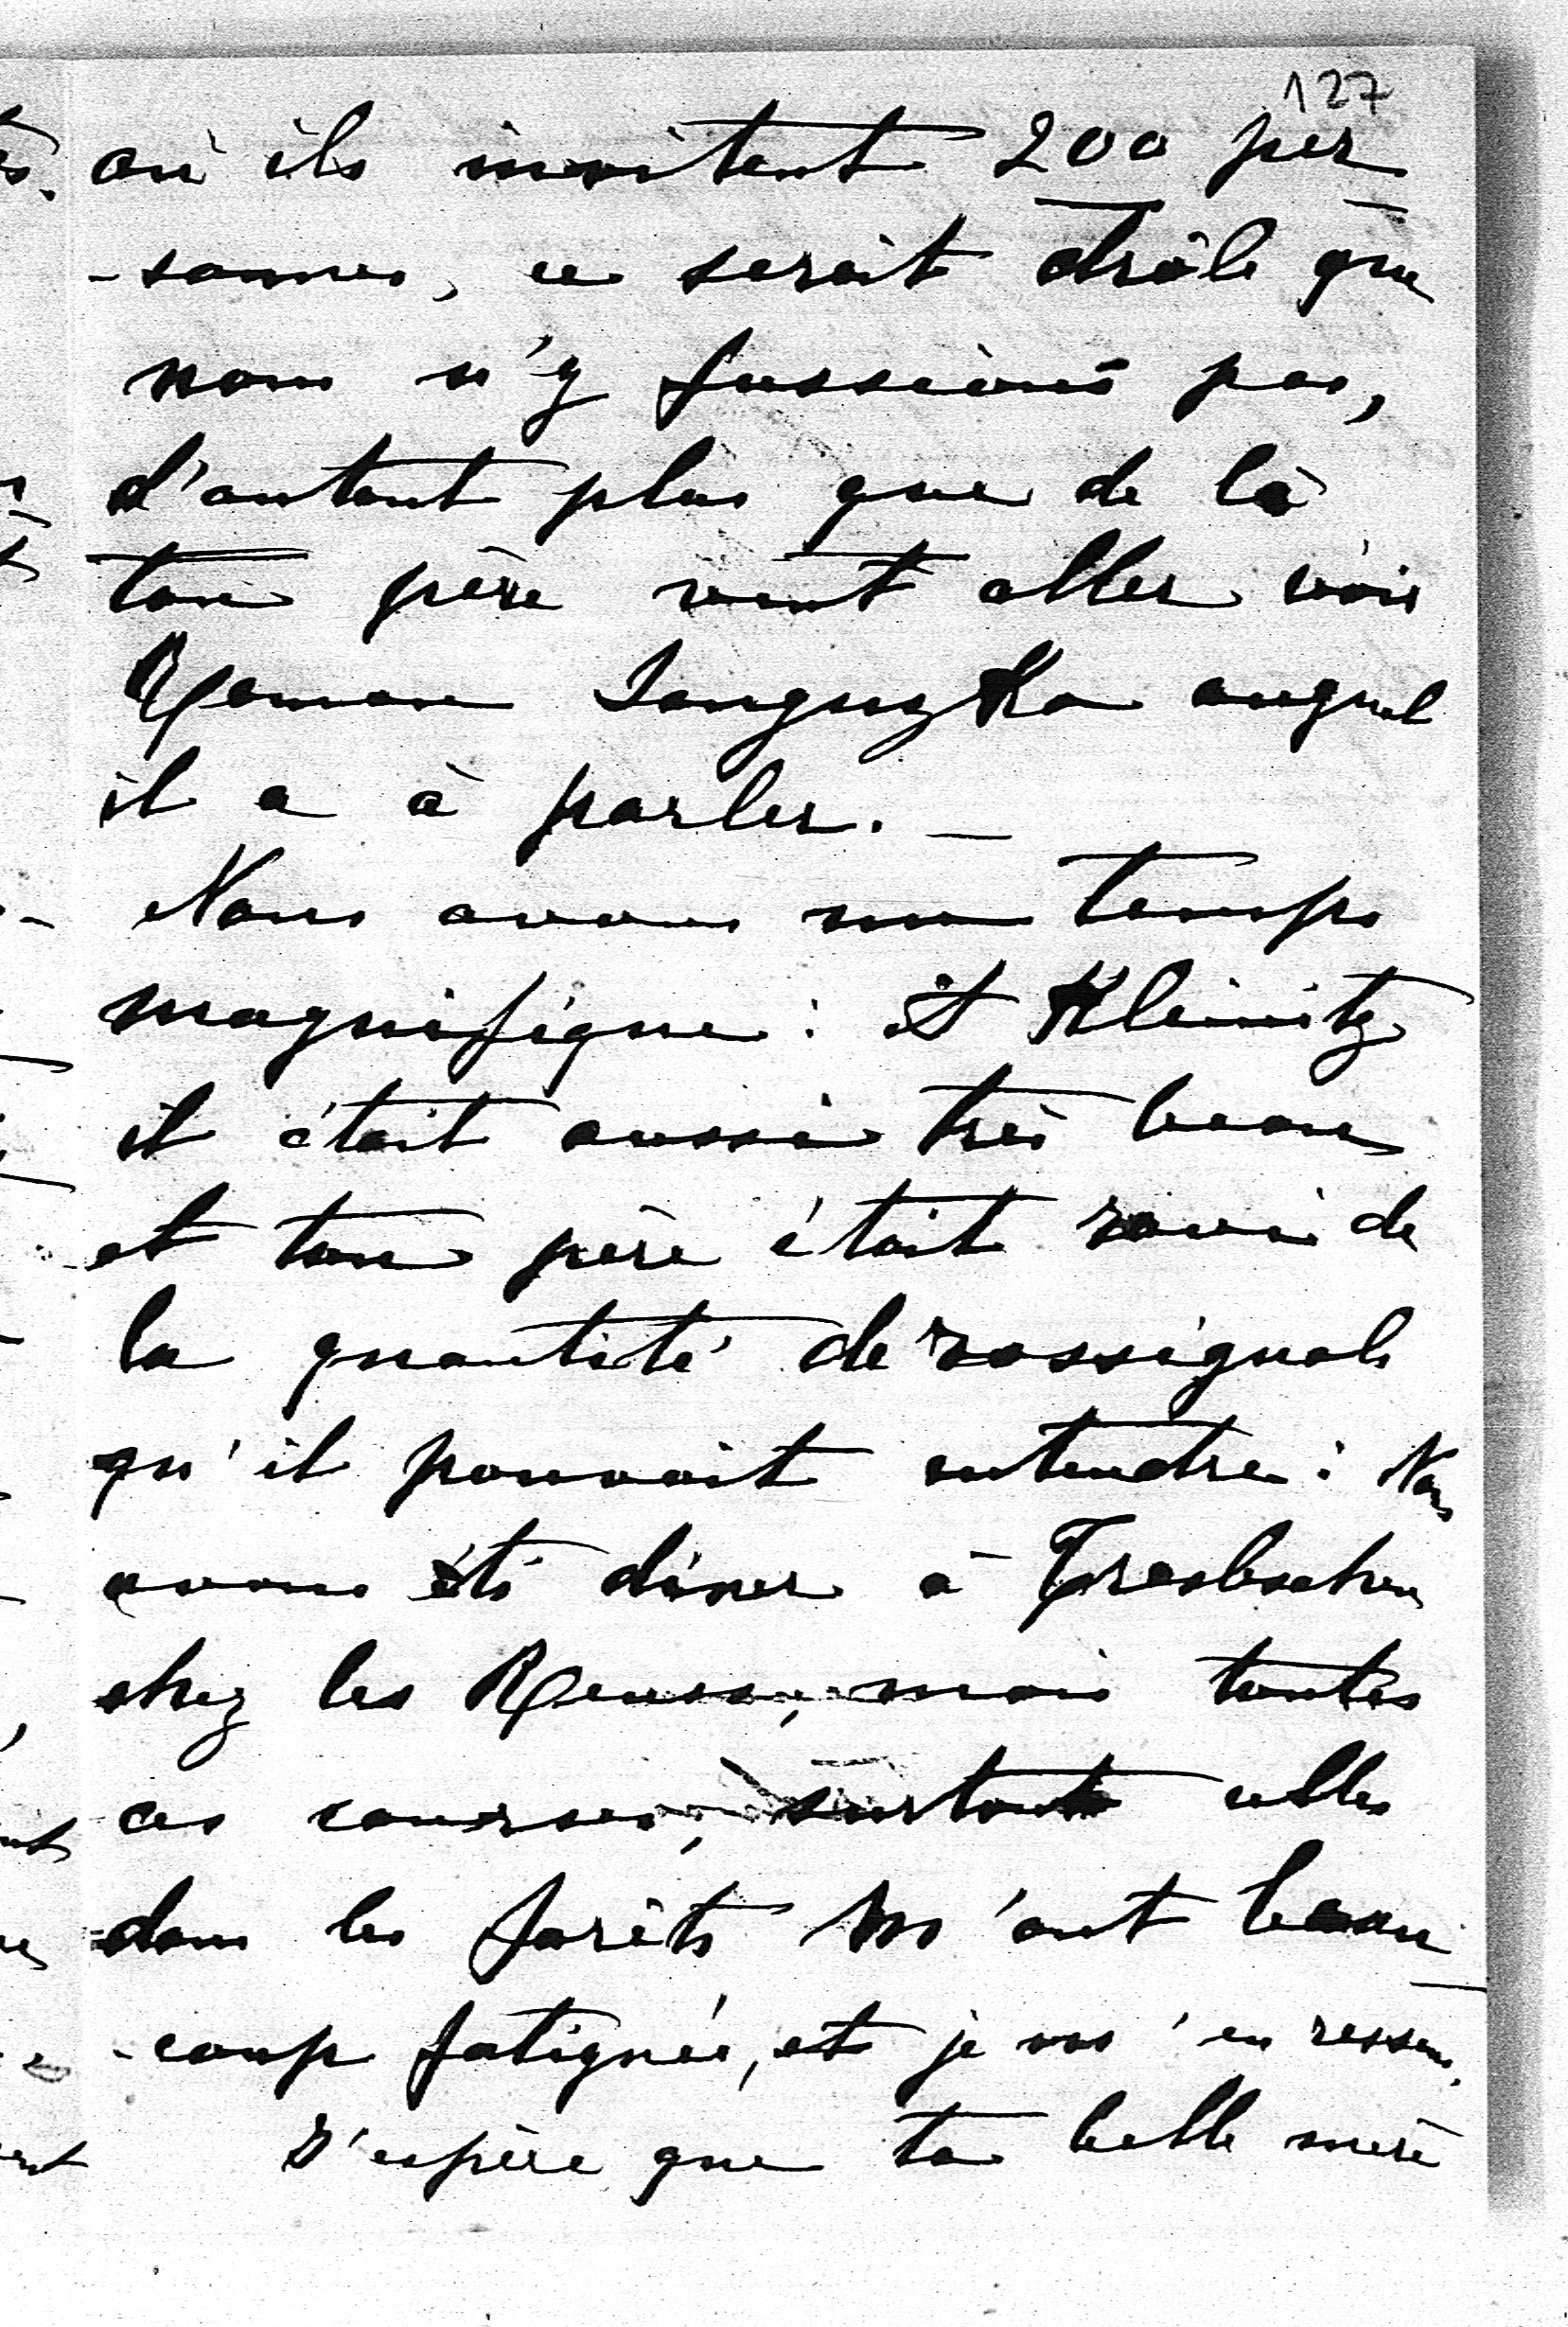 127
où ils invitent 200 per
-sonnes, ce serait drôle que
nous n'y fussions pas,
d'autant plus que de là
ton père veut aller voir
Roman Sanguszko auquel
il a à parler. —
Nous avons un temps
magnifique : A Kleinitz
il était aussi très beau
et ton père était ravi de
la quantité de rossignols
qu'il pouvait entendre : Nous
avons été dîner à Trebschen
chez les Reuss, mais toutes
ces courses, surtout celles
dans les forêts m'ont beau
-coup fatiguée, et je m'en ressens.
J'espère que ta belle mère